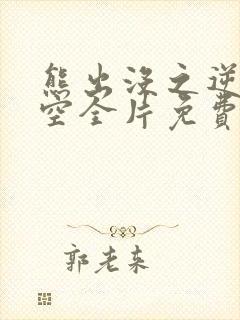 熊出没之逆
空全片免费
郭老来